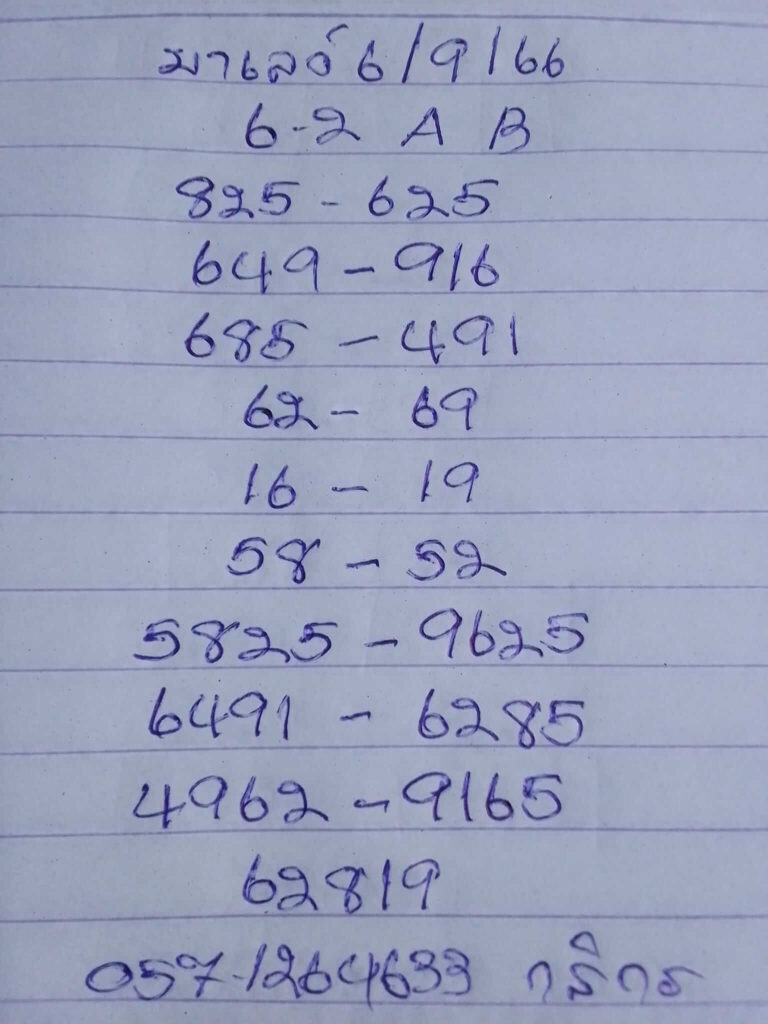 มาเลย์ 6/9/66
6-2 A B
825 - 625
649 - 916
685 - 491
62 - 69
16 - 19
58 - 52
5825 - 9625
6491 - 6285
4962 - 9165
62819
057-1264633 กสิกร